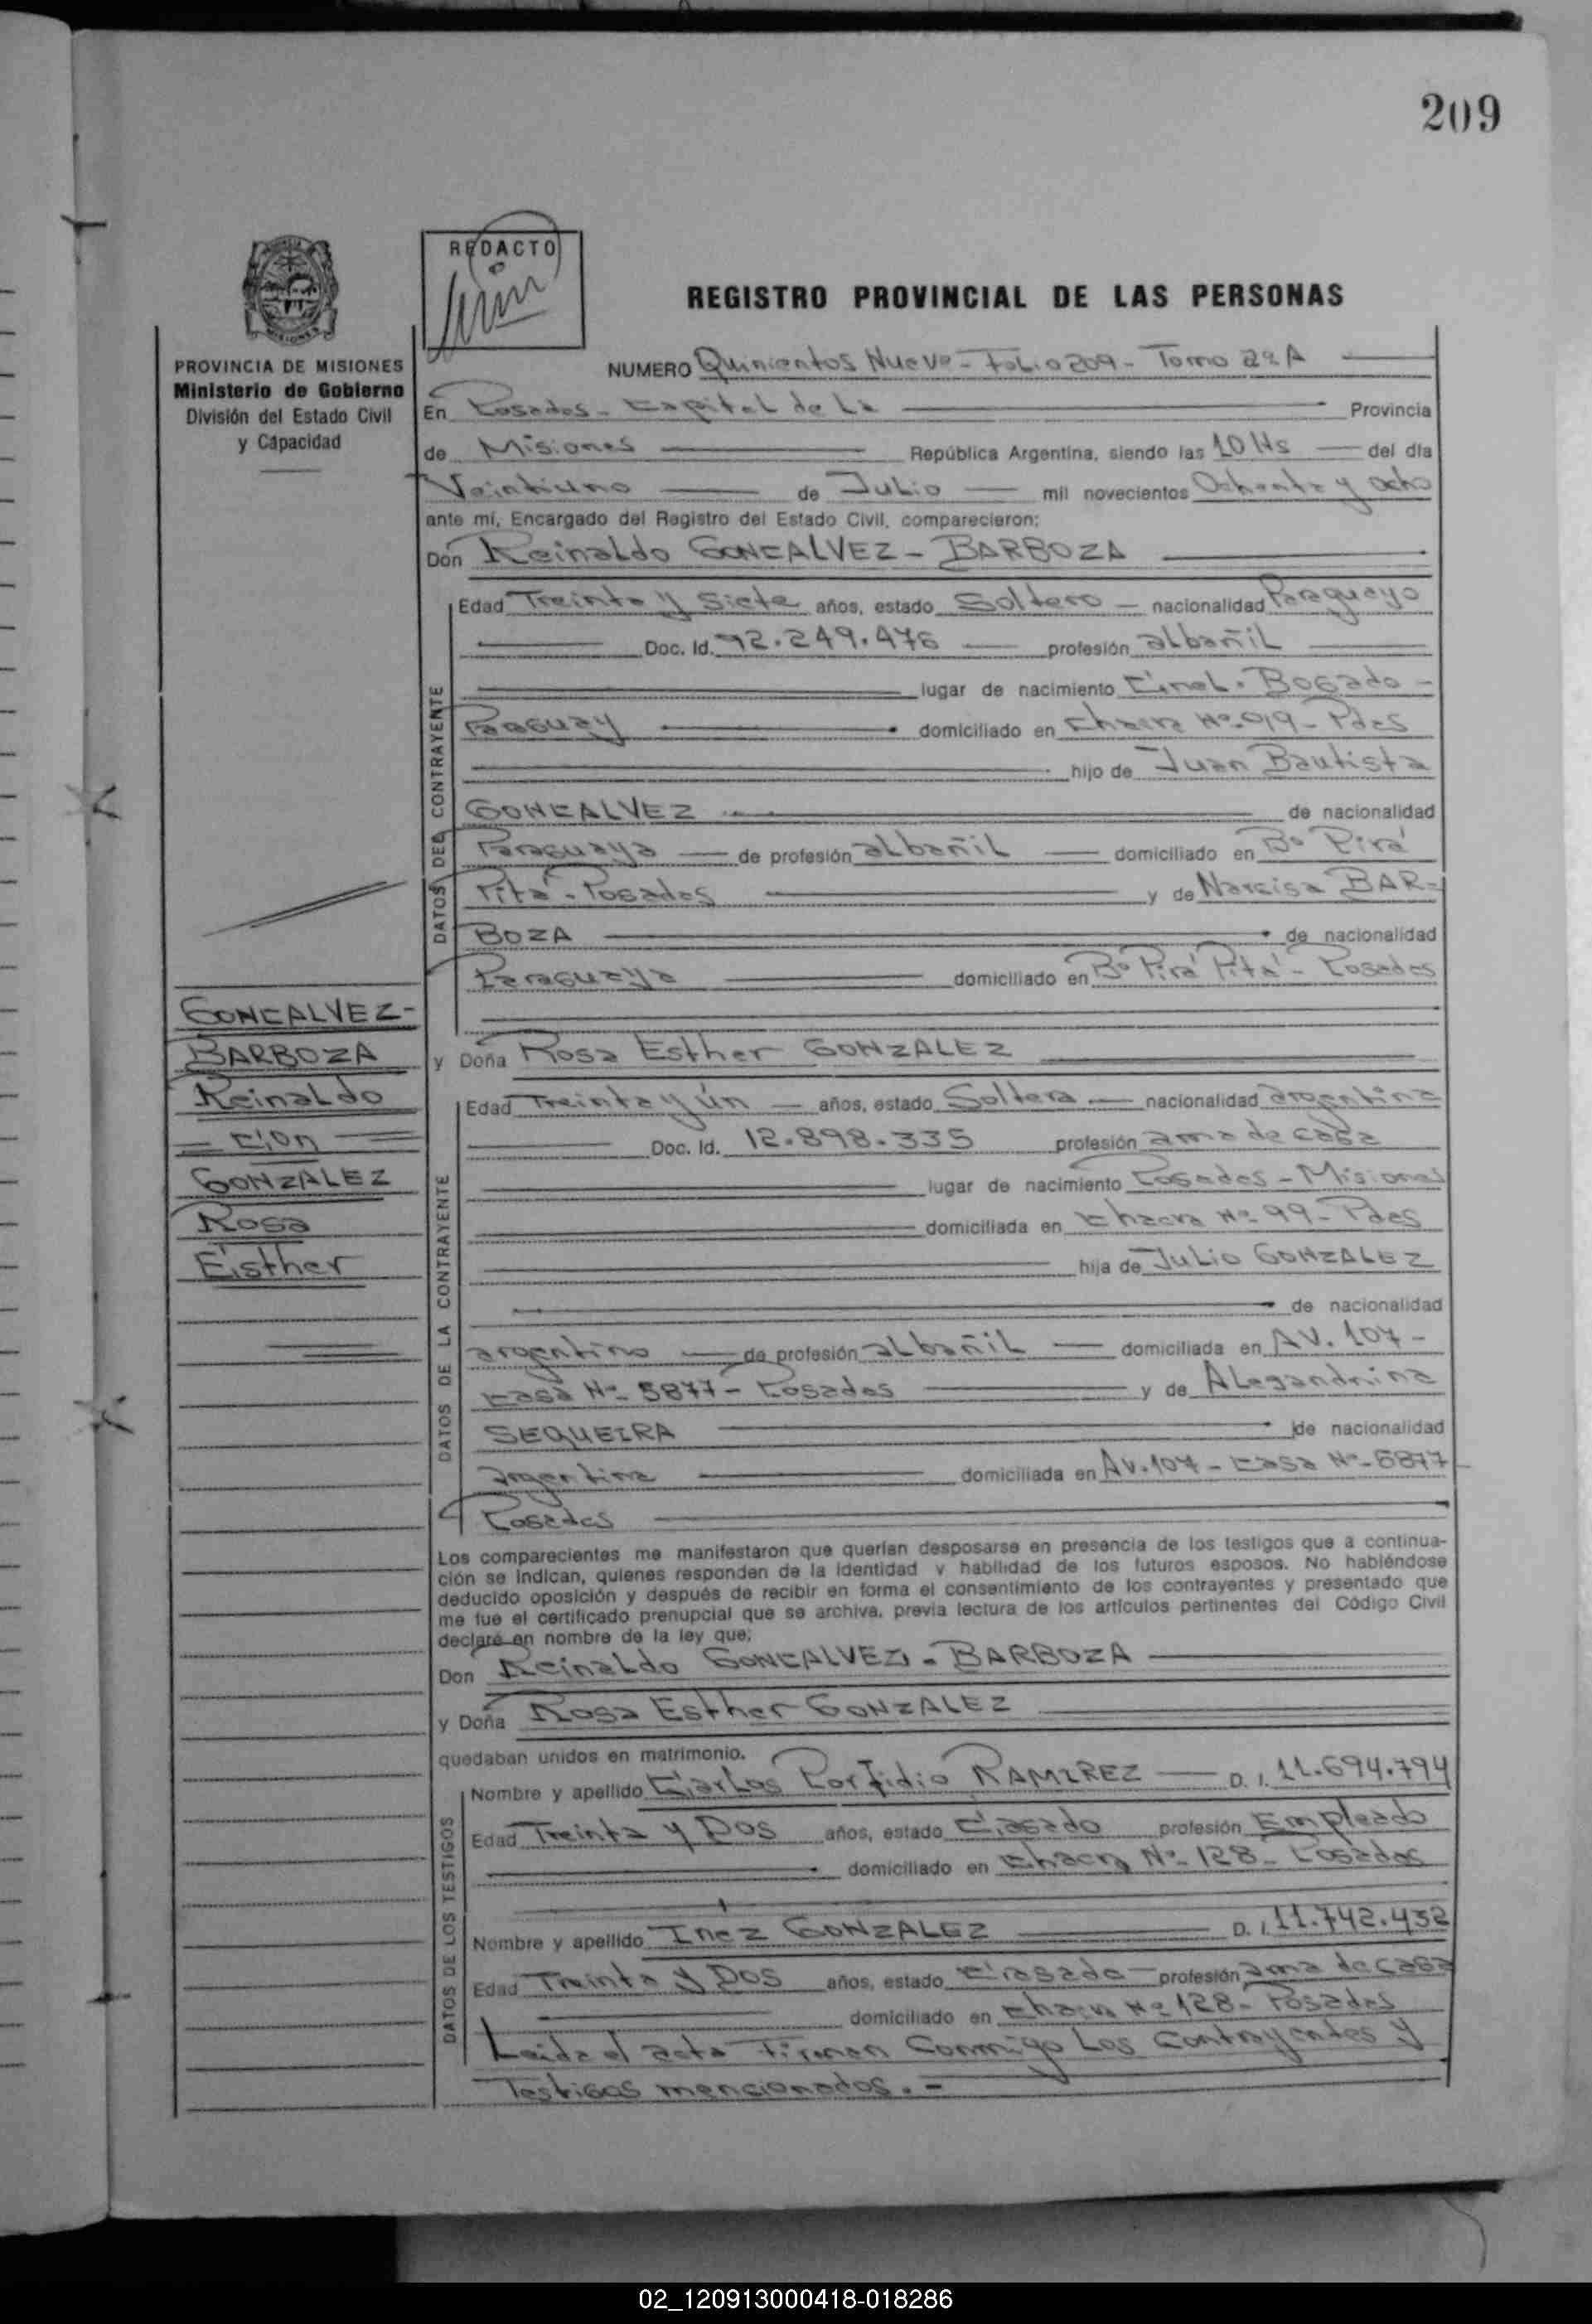 209
REDACTO
REGISTRO PROVINCIAL DE LAS PERSONAS
PROVINCIA DE MISIONES
Ministerio de Gobierno
División del Estado Civil
y Capacidad
NUMERO Quinientos Nueve - Folio 209 - Tomo 2º A
En Posadas - Capital de La Provincia
de Misiones República Argentina, siendo las 10 Hs del día
Veintiuno de Julio mil novecientos Ochenta y ocho
ante mí, Encargado del Registro del Estado Civil, comparecieron:
Don Reinaldo GONCALVEZ - BARBOZA
DATOS DEL CONTRAYENTE
Edad Treinta y Siete años, estado Soltero - nacionalidad Paraguayo
Doc. Id. 92.249.476 profesión albañil
lugar de nacimiento Cnel. Bogado -
Paraguay domiciliado en Chacra Nº 99 - Pdas
hijo de Juan Bautista
GONCALVEZ de nacionalidad
Paraguaya de profesión albañil domiciliado en Bº Pirá
Pitá - Posadas y de Narcisa BAR-
BOZA de nacionalidad
Paraguaya domiciliado en Bº Pirá Pitá - Posadas
GONCALVEZ -
BARBOZA
Reinaldo
con
GONZALEZ
Rosa
Esther
y Doña Rosa Esther GONZALEZ
DATOS DE LA CONTRAYENTE
Edad Treinta y ún años, estado Soltera nacionalidad argentina
Doc. Id. 12.898.335 profesión ama de casa
lugar de nacimiento Posadas - Misiones
domiciliada en Chacra Nº 99 - Pdas
hija de Julio GONZALEZ
de nacionalidad
argentino de profesión albañil domiciliada en AV. 107 -
Casa Nº 5877 - Posadas y de Alegandrina
SEQUEIRA de nacionalidad
argentina domiciliada en AV. 107 - Casa Nº 5877
Posadas
Los comparecientes me manifestaron que querían desposarse en presencia de los testigos que a continua-
ción se indican, quienes responden de la identidad y habilidad de los futuros esposos. No habiéndose
deducido oposición y después de recibir en forma el consentimiento de los contrayentes y presentado que
me fue el certificado prenupcial que se archiva, previa lectura de los artículos pertinentes del Código Civil
declaré en nombre de la ley que:
Don Reinaldo GONCALVEZ - BARBOZA
y Doña Rosa Esther GONZALEZ
quedaban unidos en matrimonio.
DATOS DE LOS TESTIGOS
Nombre y apellido Carlos Porfidio RAMIREZ D. I. 11.694.794
Edad Treinta y Dos años, estado Casado profesión Empleado
domiciliado en Chacra Nº 128 - Posadas
Nombre y apellido Inez GONZALEZ D. I. 11.742.432
Edad Treinta y Dos años, estado Casada - profesión ama de casa
domiciliado en Chacra Nº 128 - Posadas
Leida el acta Firman Conmigo Los Contrayentes y
Testigos mencionados. -
02_120913000418-018286